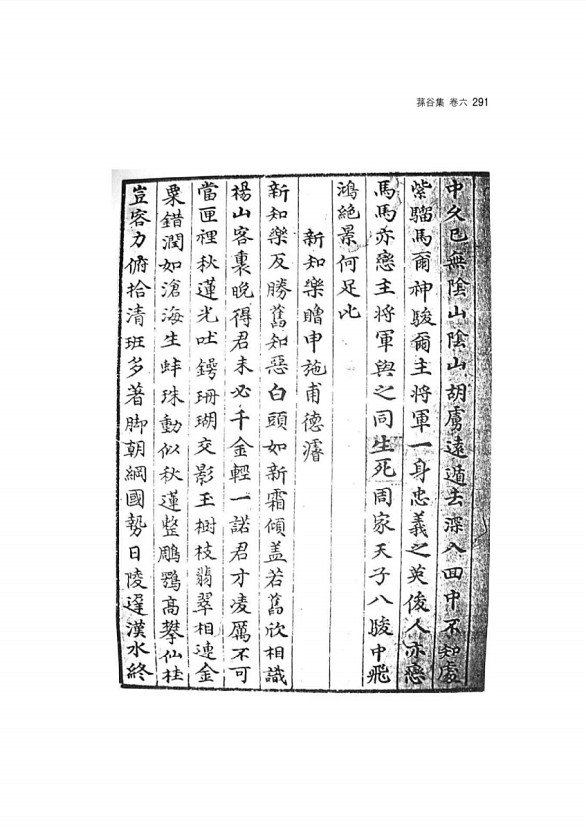 蓀谷集 卷六 291
中久已無陰山陰山胡虜遠遁去深入回中不知處
紫騮馬爾神駿爾主將軍一身忠義之英俊人亦戀
馬馬亦戀主將軍與之同生死周家天子八駿中飛
鴻絶景何足比
新知樂贈申施甫德濬
新知樂反勝舊知惡白頭如新霜傾盖若舊欣相識
楊山客裏晚得君未必千金輕一諾君才凌厲不可
當匣裡秋蓮光吐鍔珊瑚交影玉樹枝翡翠相連金
粟錯潤如滄海生蚌珠動似秋蓬整鵰鶚高攀仙桂
豈容力俯拾清班多著脚朝綱國勢日陵遲漢水終